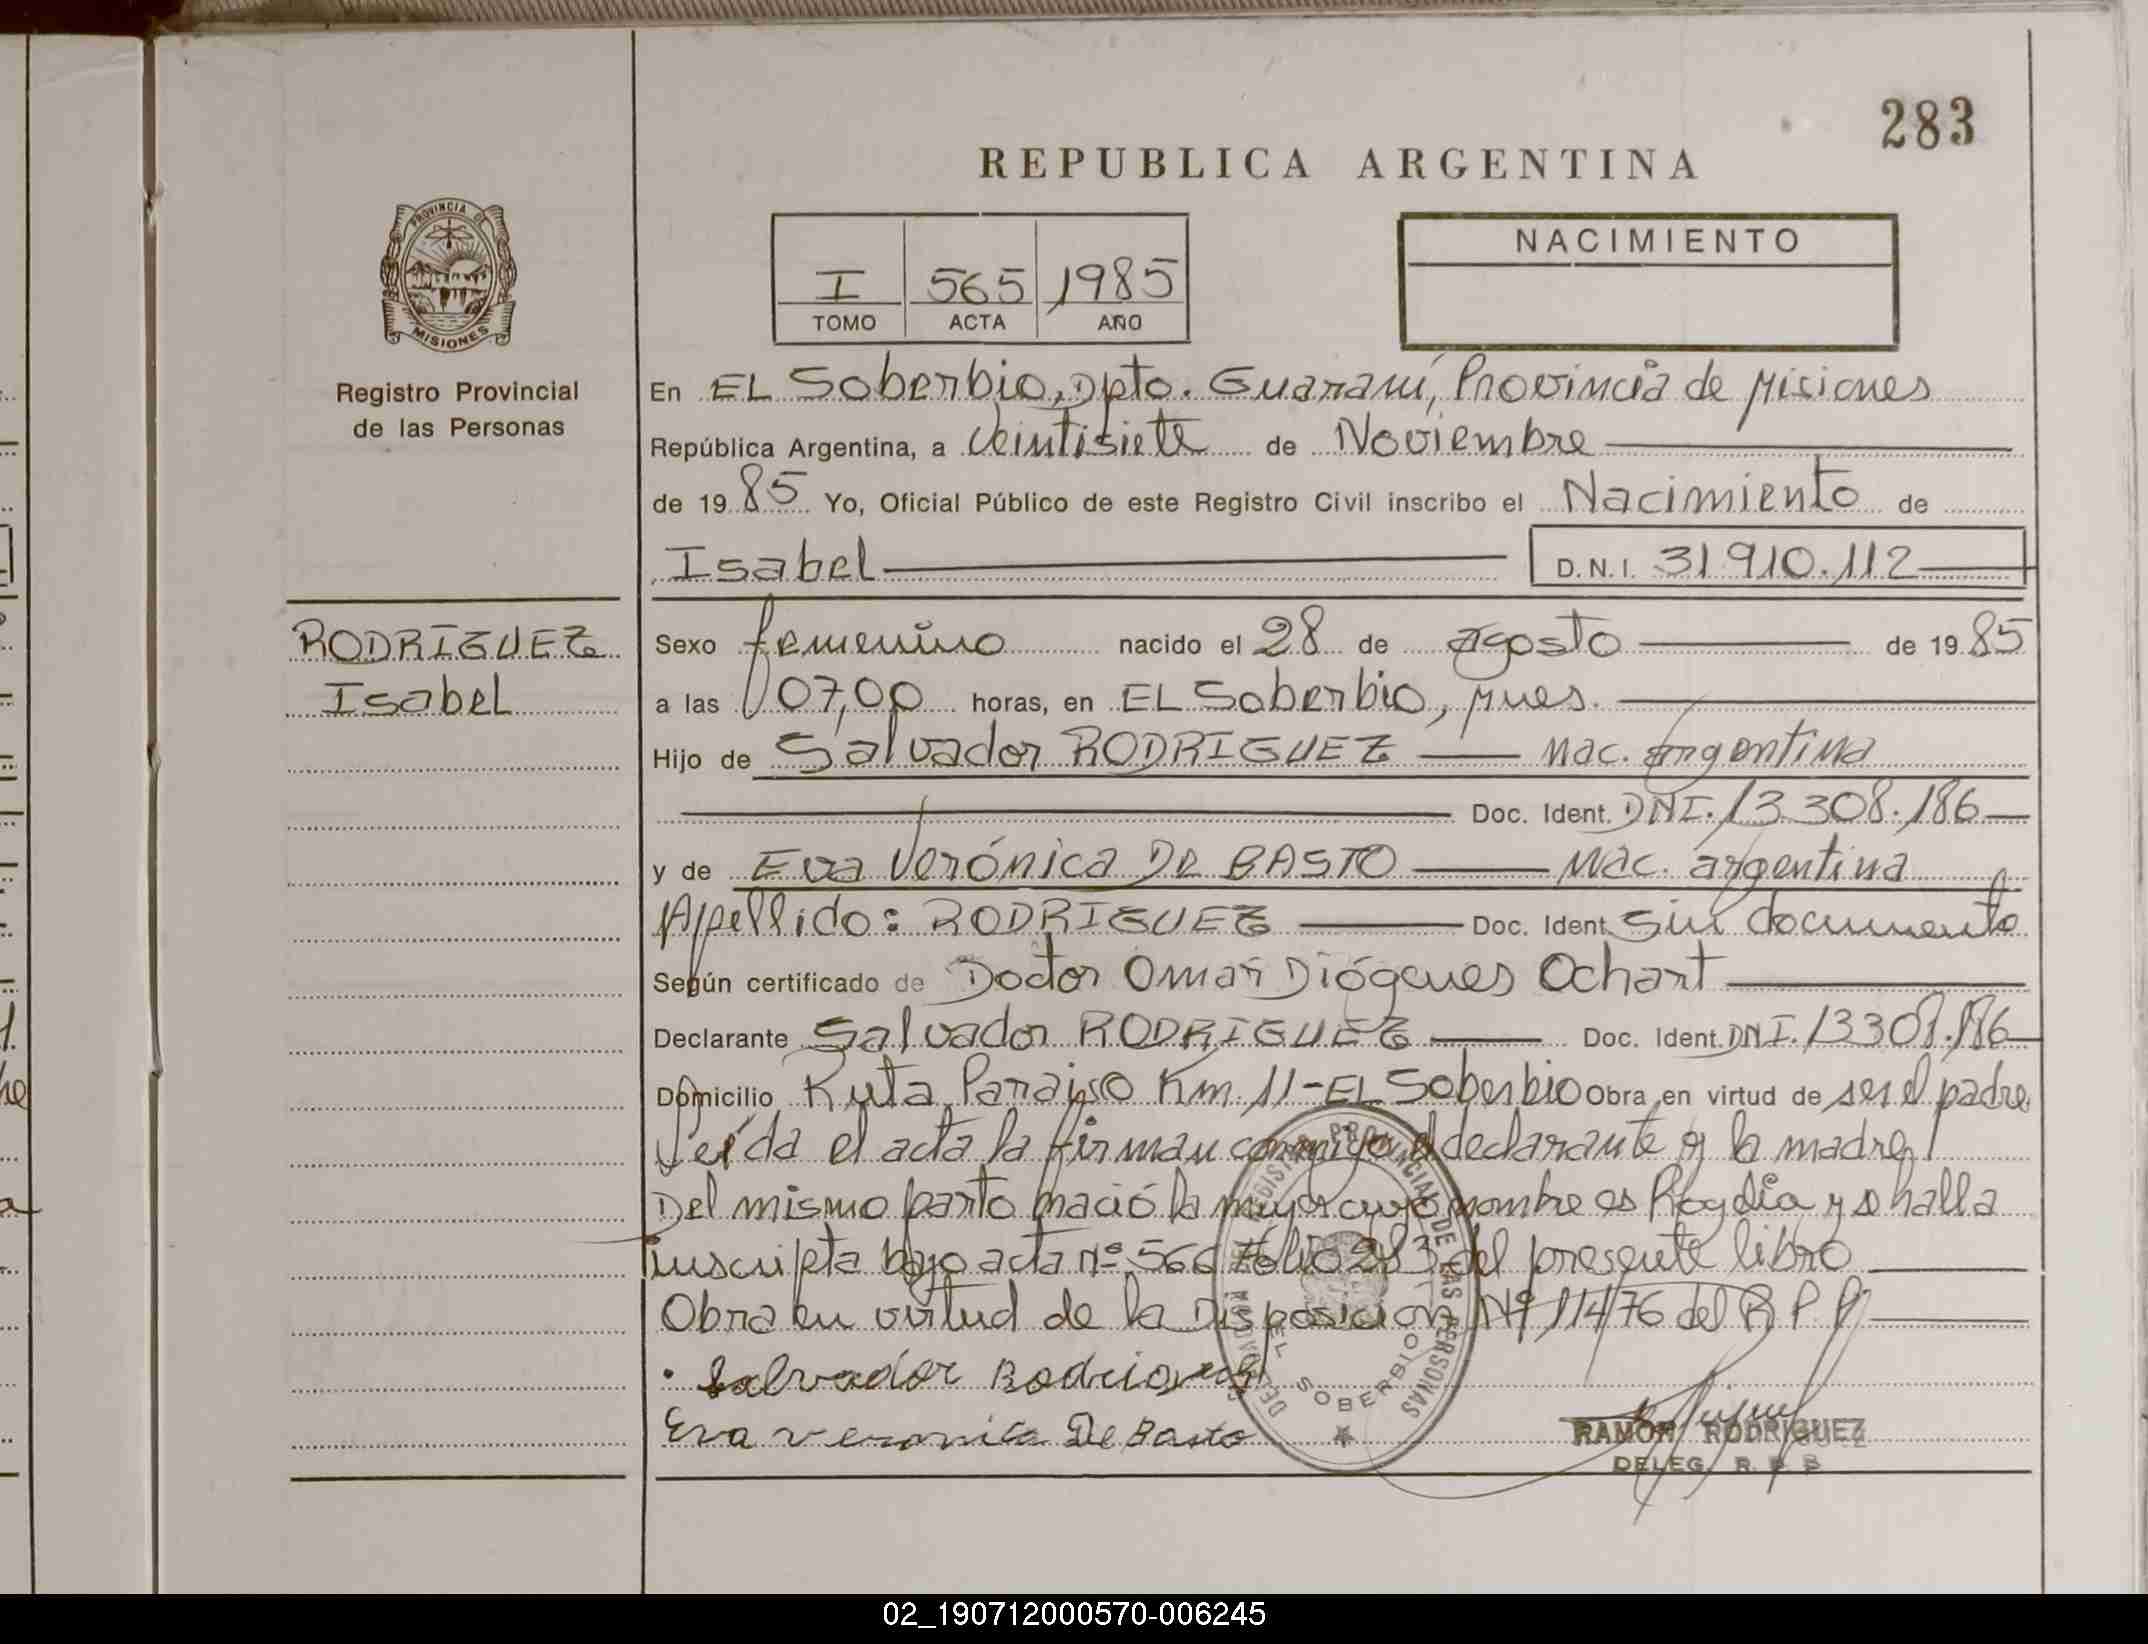 283
REPUBLICA ARGENTINA
PROVINCIA DE
MISIONES
Registro Provincial
de las Personas
I 565 1985
TOMO ACTA AÑO
NACIMIENTO
En EL Soberbio, Dpto. Guaraní, Provincia de Misiones
República Argentina, a Veintisiete de Noviembre
de 1985 Yo, Oficial Público de este Registro Civil inscribo el Nacimiento de
Isabel D.N.I. 31.910.112
RODRIGUEZ
Isabel
Sexo femenino nacido el 28 de agosto de 1985
a las 07,00 horas, en EL Soberbio, Mnes.
Hijo de Salvador RODRIGUEZ Nac. argentina
Doc. Ident. DNI. 13.308.186
y de Eva Verónica DE BASTO Nac. argentina
Apellido: RODRIGUEZ Doc. Ident. Sin documento
Según certificado de Doctor Omar Diógenes Ochart
Declarante Salvador RODRIGUEZ Doc. Ident. DNI. 13308.186
Domicilio Ruta Paraiso Km. 11-EL Soberbio Obra en virtud de ser el padre
Leída el acta la firman conmigo el declarante y la madre
Del mismo parto nació la mujer cuyo nombre es y se halla
inscripta bajo acta Nº 566 Folio 283 del presente libro
Obra en virtud de la Disposicion Nº 114/76 del R.P.P.
Salvador Rodriguez
Eva veronica De Basto
REGISTRO PROVINCIAL DE LAS PERSONAS
EL SOBERBIO
RAMON RODRIGUEZ
DELEG. R. P. P.
02_190712000570-006245